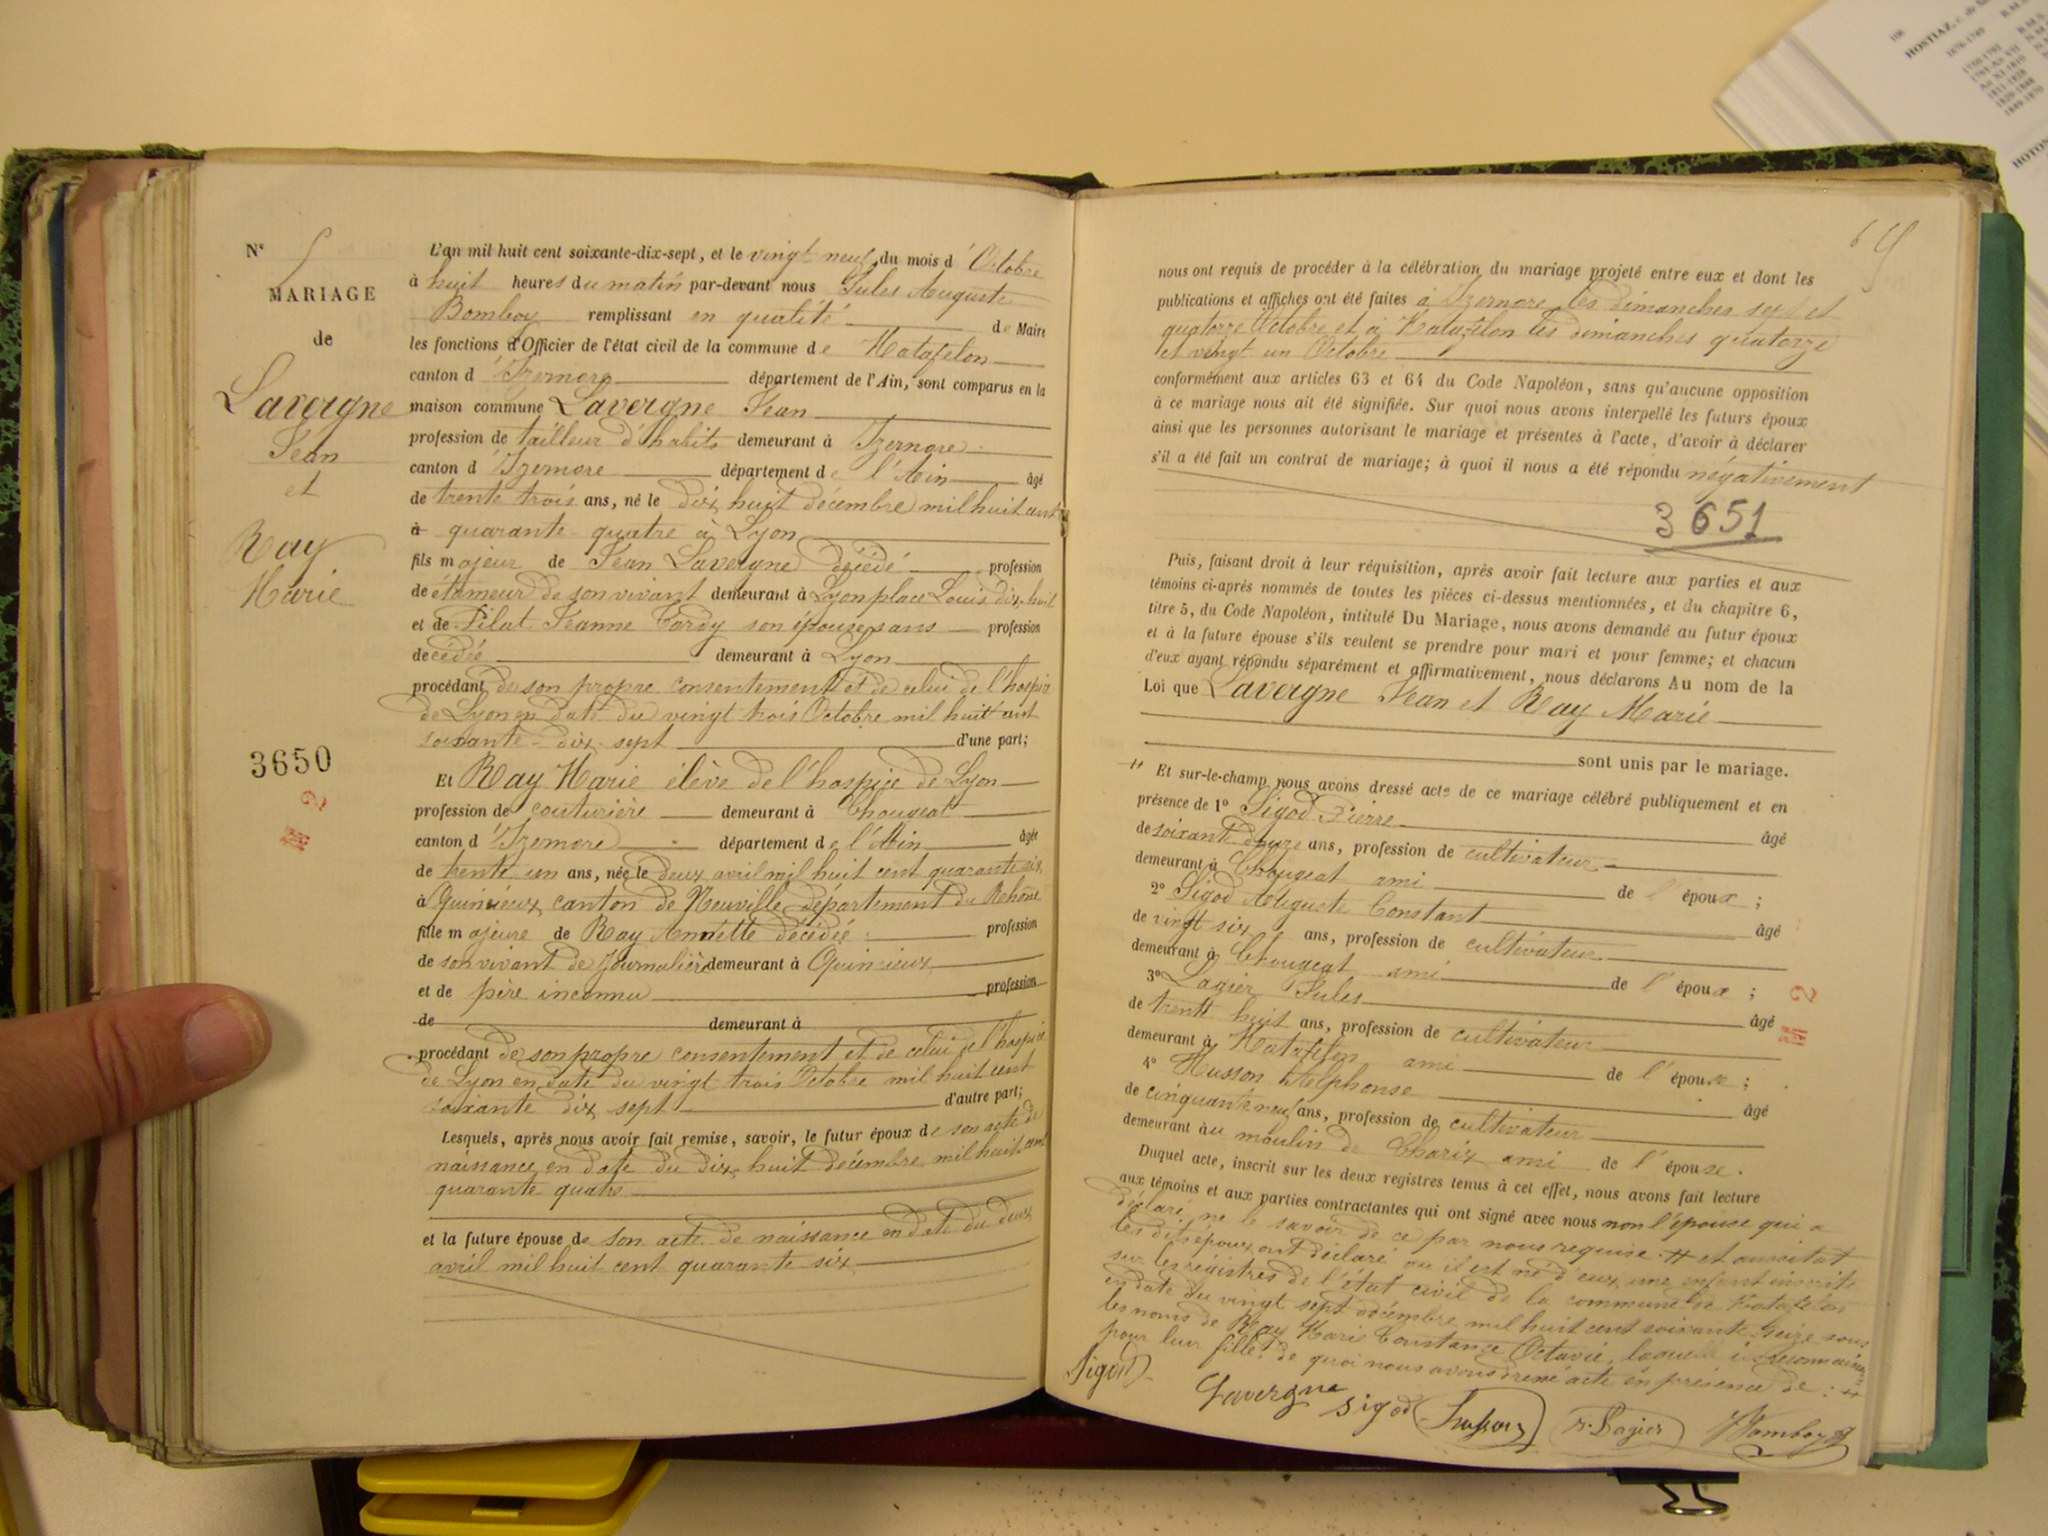 N° 5
MARIAGE
de
Lavergne
Jean
et
Ray
Marie
3650
L'an mil huit cent soixante-dix-sept, et le vingt neuf du mois d'Octobre
à huit heures du matin par-devant nous Jules Auguste
Bomboy remplissant en qualité de Maire
les fonctions d'Officier de l'état civil de la commune de Matafelon
canton d'Izernore département de l'Ain, sont comparus en la
maison commune Lavergne Jean
profession de tailleur d'habits demeurant à Izernore
canton d'Izernore département de l'Ain âgé
de trente trois ans, né le dix huit décembre mil huit cent
à quarante quatre à Lyon
fils majeur de Jean Lavergne décédé profession
de étameur de son vivant demeurant à Lyon place Louis dix huit
et de Pilat Jeanne Tardy son épouse sans profession
décédée demeurant à Lyon
procédant de son propre consentement et de celui de l'hospice
de Lyon en date du vingt trois Octobre mil huit cent
soixante dix sept d'une part;
Et Ray Marie élève de l'hospice de Lyon
profession de couturière demeurant à Chougeat
canton d'Izernore département de l'Ain âgée
de trente un ans, née le deux avril mil huit cent quarante six
à Quincieux canton de Neuville département du Rhône
fille majeure de Ray Annette décédée profession
de son vivant de Journalière demeurant à Quincieux
et de père inconnu profession
de demeurant à
procédant de son propre consentement et de celui de l'hospice
de Lyon en date du vingt trois Octobre mil huit cent
soixante dix sept d'autre part;
Lesquels, après nous avoir fait remise, savoir, le futur époux de son acte de
naissance en date du dix huit décembre mil huit cent
quarante quatre
et la future épouse de son acte de naissance en date du deux
avril mil huit cent quarante six
nous ont requis de procéder à la célébration du mariage projeté entre eux et dont les
publications et affiches ont été faites à Izernore les dimanches sept et
quatorze Octobre et à Matafelon les dimanches quatorze
et vingt un Octobre
conformément aux articles 63 et 64 du Code Napoléon, sans qu'aucune opposition
à ce mariage nous ait été signifiée. Sur quoi nous avons interpellé les futurs époux
ainsi que les personnes autorisant le mariage et présentes à l'acte, d'avoir à déclarer
s'il a été fait un contrat de mariage; à quoi il nous a été répondu négativement
3651
Puis, faisant droit à leur réquisition, après avoir fait lecture aux parties et aux
témoins ci-après nommés de toutes les pièces ci-dessus mentionnées, et du chapitre 6,
titre 5, du Code Napoléon, intitulé Du Mariage, nous avons demandé au futur époux
et à la future épouse s'ils veulent se prendre pour mari et pour femme; et chacun
d'eux ayant répondu séparément et affirmativement, nous déclarons Au nom de la
Loi que Lavergne Jean et Ray Marie
sont unis par le mariage.
Et sur-le-champ nous avons dressé acte de ce mariage célébré publiquement et en
présence de 1° Sigod Pierre âgé
de soixante douze ans, profession de cultivateur
demeurant à Chougeat ami de l'époux;
2° Sigod Auguste Constant âgé
de vingt six ans, profession de cultivateur
demeurant à Chougeat ami de l'époux;
3° Lagier Jules âgé
de trente huit ans, profession de cultivateur
demeurant à Matafelon ami de l'épouse;
4° Husson Alphonse âgé
de cinquante neuf ans, profession de cultivateur
demeurant au moulin de Charix ami de l'épouse.
Duquel acte, inscrit sur les deux registres tenus à cet effet, nous avons fait lecture
aux témoins et aux parties contractantes qui ont signé avec nous non l'épouse qui a
déclaré ne le savoir de ce par nous requise. # et aussitôt
les dits époux ont déclaré qu'il est né d'eux une enfant inscrite
sur les régistres de l'état civil de la commune de Matafelon
en date du vingt sept décembre mil huit cent soixante seize sous
les noms de Ray Marie Constance Octavie, laquelle ils reconnaissent
pour leur fille. de quoi nous avons dressé acte en présence de: #
Sigod
Lavergne Sigod Husson J. Lagier Bomboy
HOSTIAZ, c. de